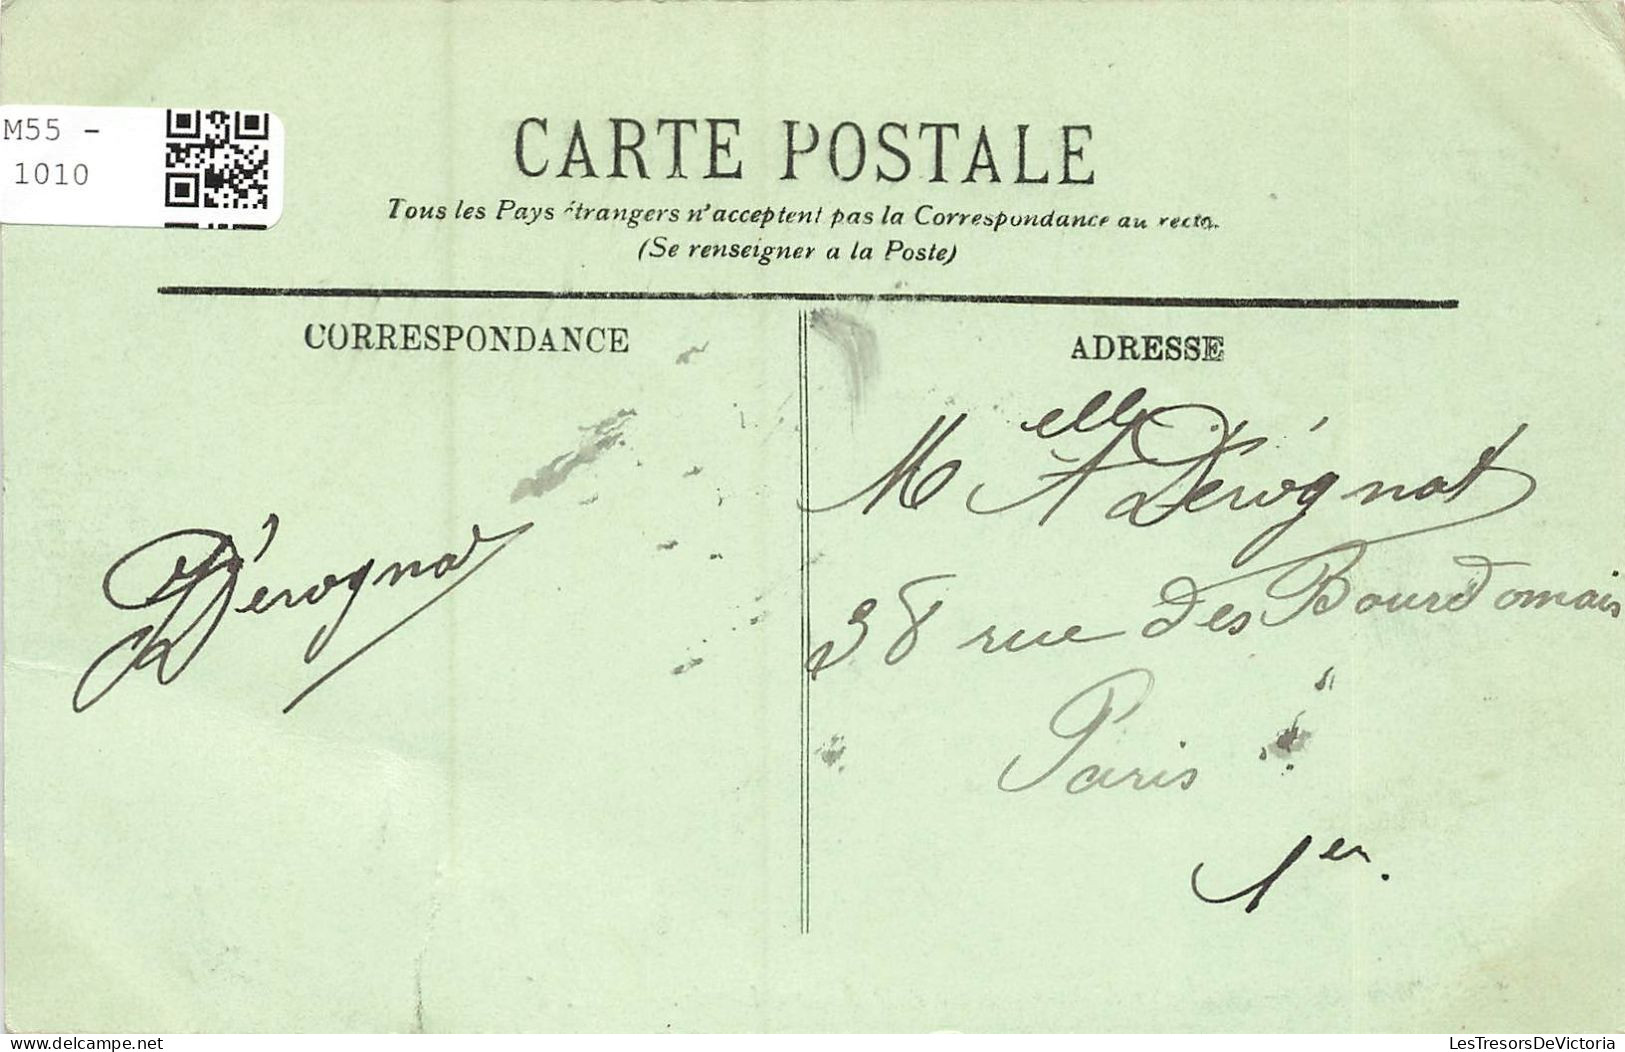 M55 -
1010
CARTE POSTALE
Tous les Pays étrangers n'acceptent pas la Correspondance au recto.
(Se renseigner a la Poste)
CORRESPONDANCE
ADRESSE
Dérognat
Melle A Dérognat
38 rue des Bourdonnais
Paris
1er.
LesTresorsDeVictoria